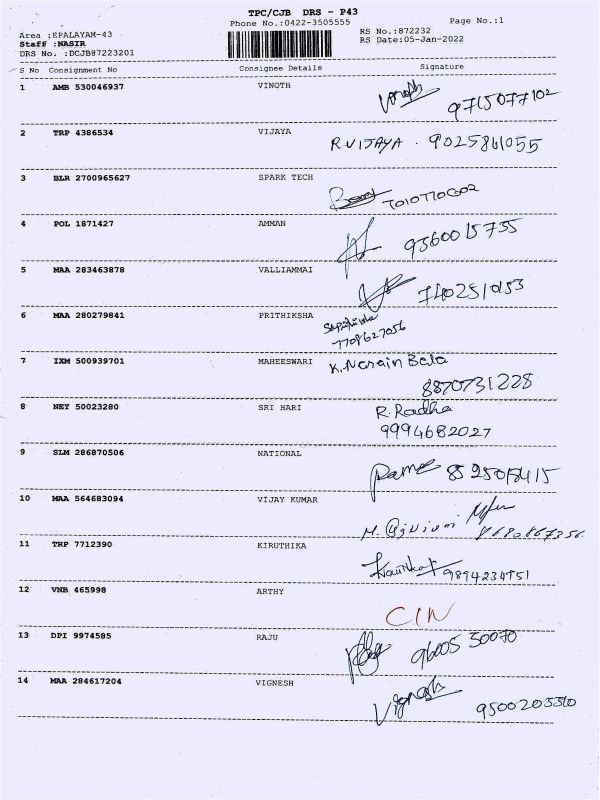 TPC/CJB DRS - P43
Phone No.:0422-3505555
Page No.:1
Area :EPALAYAM-43
RS No.:872232
Staff :NASIR
RS Date:05-Jan-2022
DRS No. :DCJB87223201
S No Consignment No Consignee Details Signature
1 AMB 530046937 VINOTH
9715077102
2 TRP 4386534 VIJAYA R VIJAYA . 9025861055
3 BLR 2700965627 SPARK TECH
4 POL 1871427 AMMAN
9360015735
5 MAA 283463878 VALLIAMMAI
6 MAA 280279841 PRITHIKSHA
7708627056
7 IXM 500939701 MAHEESWARI K. Narain Bala
8870731228
8 NEY 50023280 SRI HARI R. Radha
9994682027
9 SLM 286870506 NATIONAL
10 MAA 564683094 VIJAY KUMAR
11 TRP 7712390 KIRUTHIKA
12 VNB 465998 ARTHY
13 DPI 9974585 RAJU
96005 30070
14 MAA 284617204 VIGNESH Vignesh